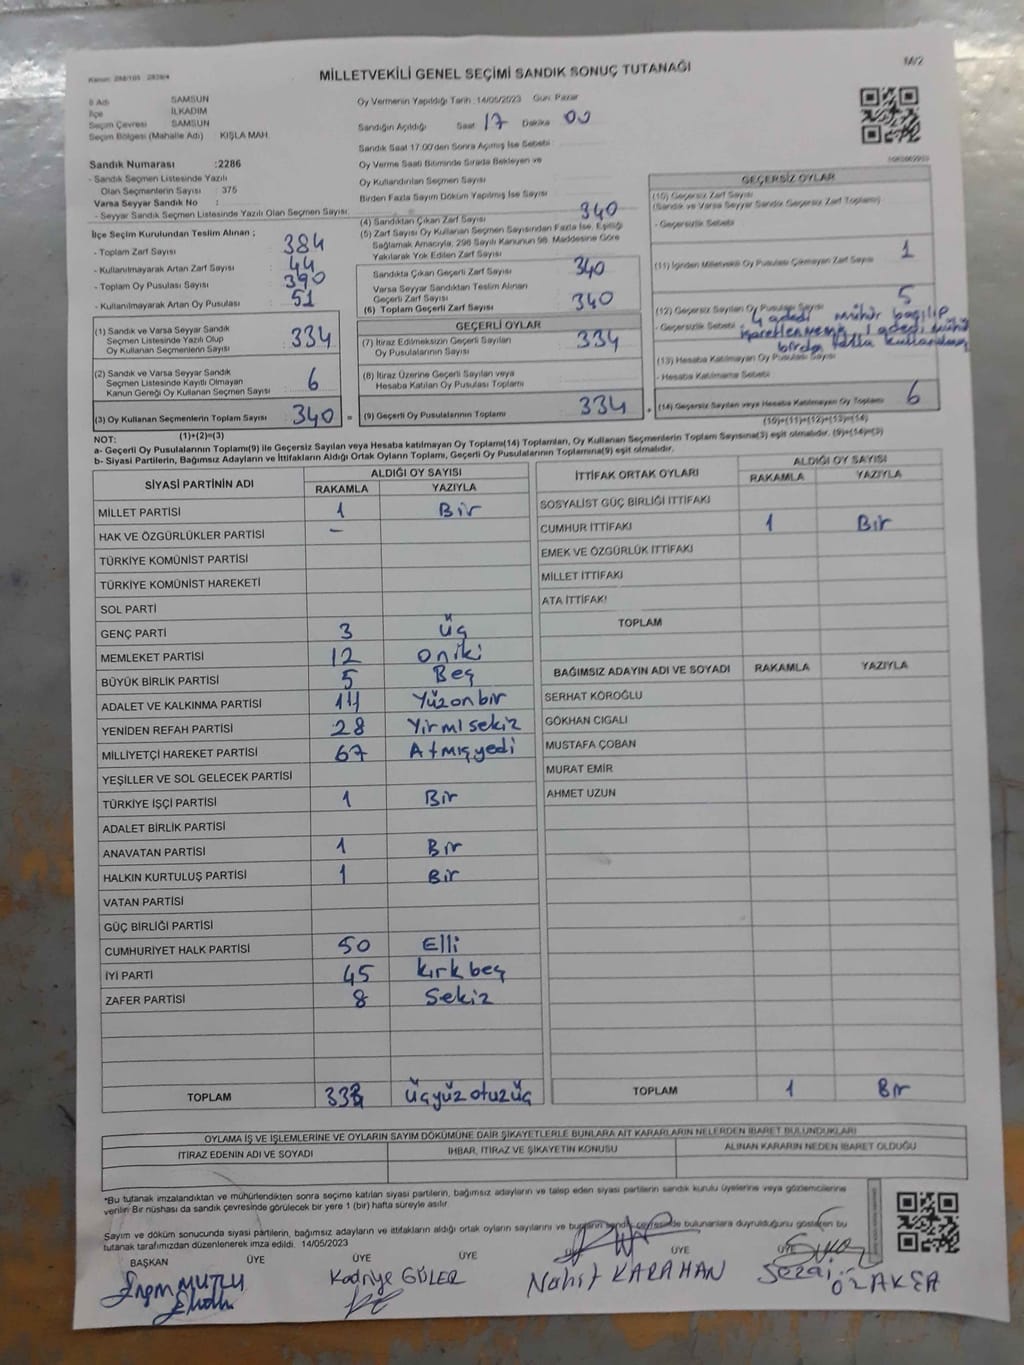 MİLLETVEKİLİ GENEL SEÇİMİ SANDIK SONUÇ TUTANAĞI
M/2
İl Adı SAMSUN
İlçe İLKADIM
Seçim Çevresi SAMSUN
Seçim Bölgesi (Mahalle Adı) KIŞLA MAH.
Sandık Numarası :2286
- Sandık Seçmen Listesinde Yazılı
Olan Seçmenlerin Sayısı : 375
Varsa Seyyar Sandık No :
- Seyyar Sandık Seçmen Listesinde Yazılı Olan Seçmen Sayısı:
İlçe Seçim Kurulundan Teslim Alınan ;
- Toplam Zarf Sayısı 384
- Kullanılmayarak Artan Zarf Sayısı 44
- Toplam Oy Pusulası Sayısı 390
- Kullanılmayarak Artan Oy Pusulası 51
(1) Sandık ve Varsa Seyyar Sandık
Seçmen Listesinde Yazılı Olup
Oy Kullanan Seçmenlerin Sayısı 334
(2) Sandık ve Varsa Seyyar Sandık
Seçmen Listesinde Kayıtlı Olmayan
Kanun Gereği Oy Kullanan Seçmen Sayısı 6
(3) Oy Kullanan Seçmenlerin Toplam Sayısı 340 =
(1)+(2)=(3)
Oy Vermenin Yapıldığı Tarih :14/05/2023 Gün: Pazar
Sandığın Açıldığı Saat 17 Dakika 00
Sandık Saat 17:00'den Sonra Açılmış İse Sebebi
Oy Verme Saati Bitiminde Sırada Bekleyen ve
Oy Kullandırılan Seçmen Sayısı
Birden Fazla Sayım Döküm Yapılmış İse Sayısı
(4) Sandıktan Çıkan Zarf Sayısı 340
(5) Zarf Sayısı Oy Kullanan Seçmen Sayısından Fazla İse, Eşitliği
Sağlamak Amacıyla, 298 Sayılı Kanunun 98. Maddesine Göre
Yakılarak Yok Edilen Zarf Sayısı
Sandıkta Çıkan Geçerli Zarf Sayısı 340
Varsa Seyyar Sandıktan Teslim Alınan
Geçerli Zarf Sayısı
(6) Toplam Geçerli Zarf Sayısı 340
GEÇERLİ OYLAR
(7) İtiraz Edilmeksizin Geçerli Sayılan
Oy Pusulalarının Sayısı 334
(8) İtiraz Üzerine Geçerli Sayılan veya
Hesaba Katılan Oy Pusulası Toplamı
(9) Geçerli Oy Pusulalarının Toplamı 334 +
GEÇERSİZ OYLAR
(10) Geçersiz Zarf Sayısı
(Sandık ve Varsa Seyyar Sandık Geçersiz Zarf Toplamı)
- Geçersizlik Sebebi
(11) İçinden Milletvekili Oy Pusulası Çıkmayan Zarf Sayısı 1
(12) Geçersiz Sayılan Oy Pusulası Sayısı 5
- Geçersizlik Sebebi 4 adedi mühür
1 adedi mühür
birden fazla
(13) Hesaba Katılmayan Oy Pusulası Sayısı
- Hesaba Katılmama Sebebi
(14) Geçersiz Sayılan veya Hesaba Katılmayan Oy Toplamı 6
(10)+(11)+(12)+(13)=(14)
NOT:
a- Geçerli Oy Pusulalarının Toplamı(9) ile Geçersiz Sayılan veya Hesaba katılmayan Oy Toplamı(14) Toplamları, Oy Kullanan Seçmenlerin Toplam Sayısına(3) eşit olmalıdır. (9)+(14)=(3)
b- Siyasi Partilerin, Bağımsız Adayların ve İttifakların Aldığı Ortak Oyların Toplamı, Geçerli Oy Pusulalarının Toplamına(9) eşit olmalıdır.
SİYASİ PARTİNİN ADI ALDIĞI OY SAYISI
RAKAMLA YAZIYLA
MİLLET PARTİSİ 1 Bir
HAK VE ÖZGÜRLÜKLER PARTİSİ –
TÜRKİYE KOMÜNİST PARTİSİ
TÜRKİYE KOMÜNİST HAREKETİ
SOL PARTİ
GENÇ PARTİ 3 üç
MEMLEKET PARTİSİ 12 oniki
BÜYÜK BİRLİK PARTİSİ 5 Beş
ADALET VE KALKINMA PARTİSİ 111 Yüzonbir
YENİDEN REFAH PARTİSİ 28 Yirmisekiz
MİLLİYETÇİ HAREKET PARTİSİ 67 Atmışyedi
YEŞİLLER VE SOL GELECEK PARTİSİ
TÜRKİYE İŞÇİ PARTİSİ 1 Bir
ADALET BİRLİK PARTİSİ
ANAVATAN PARTİSİ 1 Bir
HALKIN KURTULUŞ PARTİSİ 1 Bir
VATAN PARTİSİ
GÜÇ BİRLİĞİ PARTİSİ
CUMHURİYET HALK PARTİSİ 50 Elli
İYİ PARTİ 45 kırkbeş
ZAFER PARTİSİ 8 Sekiz
TOPLAM 333 üçyüzotuzüç
İTTİFAK ORTAK OYLARI ALDIĞI OY SAYISI
RAKAMLA YAZIYLA
SOSYALİST GÜÇ BİRLİĞİ İTTİFAKI
CUMHUR İTTİFAKI 1 Bir
EMEK VE ÖZGÜRLÜK İTTİFAKI
MİLLET İTTİFAKI
ATA İTTİFAKI
TOPLAM
BAĞIMSIZ ADAYIN ADI VE SOYADI RAKAMLA YAZIYLA
SERHAT KÖROĞLU
GÖKHAN CIGALI
MUSTAFA ÇOBAN
MURAT EMİR
AHMET UZUN
TOPLAM 1 Bir
OYLAMA İŞ VE İŞLEMLERİNE VE OYLARIN SAYIM DÖKÜMÜNE DAİR ŞİKAYETLERLE BUNLARA AİT KARARLARIN NELERDEN İBARET BULUNDUKLARI
İTİRAZ EDENİN ADI VE SOYADI İHBAR, İTİRAZ VE ŞİKAYETİN KONUSU ALINAN KARARIN NEDEN İBARET OLDUĞU
*Bu tutanak imzalandıktan ve mühürlendikten sonra seçime katılan siyasi partilerin, bağımsız adayların ve talep eden siyasi partilerin sandık kurulu üyelerine veya gözlemcilerine
verilir. Bir nüshası da sandık çevresinde görülecek bir yere 1 (bir) hafta süreyle asılır.
Sayım ve döküm sonucunda siyasi partilerin, bağımsız adayların ve ittifakların aldığı ortak oyların sayılarını ve bunların sandık çevresinde bulunanlara duyrulduğunu gösteren bu
tutanak tarafımızdan düzenlenerek imza edildi. 14/05/2023
BAŞKAN ÜYE ÜYE ÜYE ÜYE ÜYE
MUTLU Kadriye GÜLER Nahit KARAHAN Sezai ÖZAKÇA